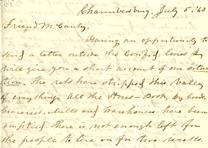 Chambersburg, July 5, '63
Friend McCauly,
Having an opportunity to
send a letter outside the Confed. lines I
will give you a short account of our situa
tion. The rebs have stripped this valley
of everything. All the Stores
Groceries, Mills and Warehouses have been
emptied. There is not enough left for
the people to live on for two weeks